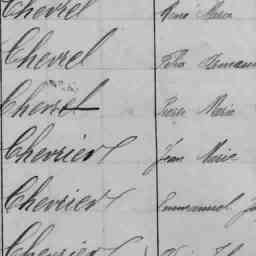 Chevrel René Marie
Chevrel Félix
Chevrel Pierre Marie
Chevrier Jean Marie
Chevrier Emmanuel
Chevrier